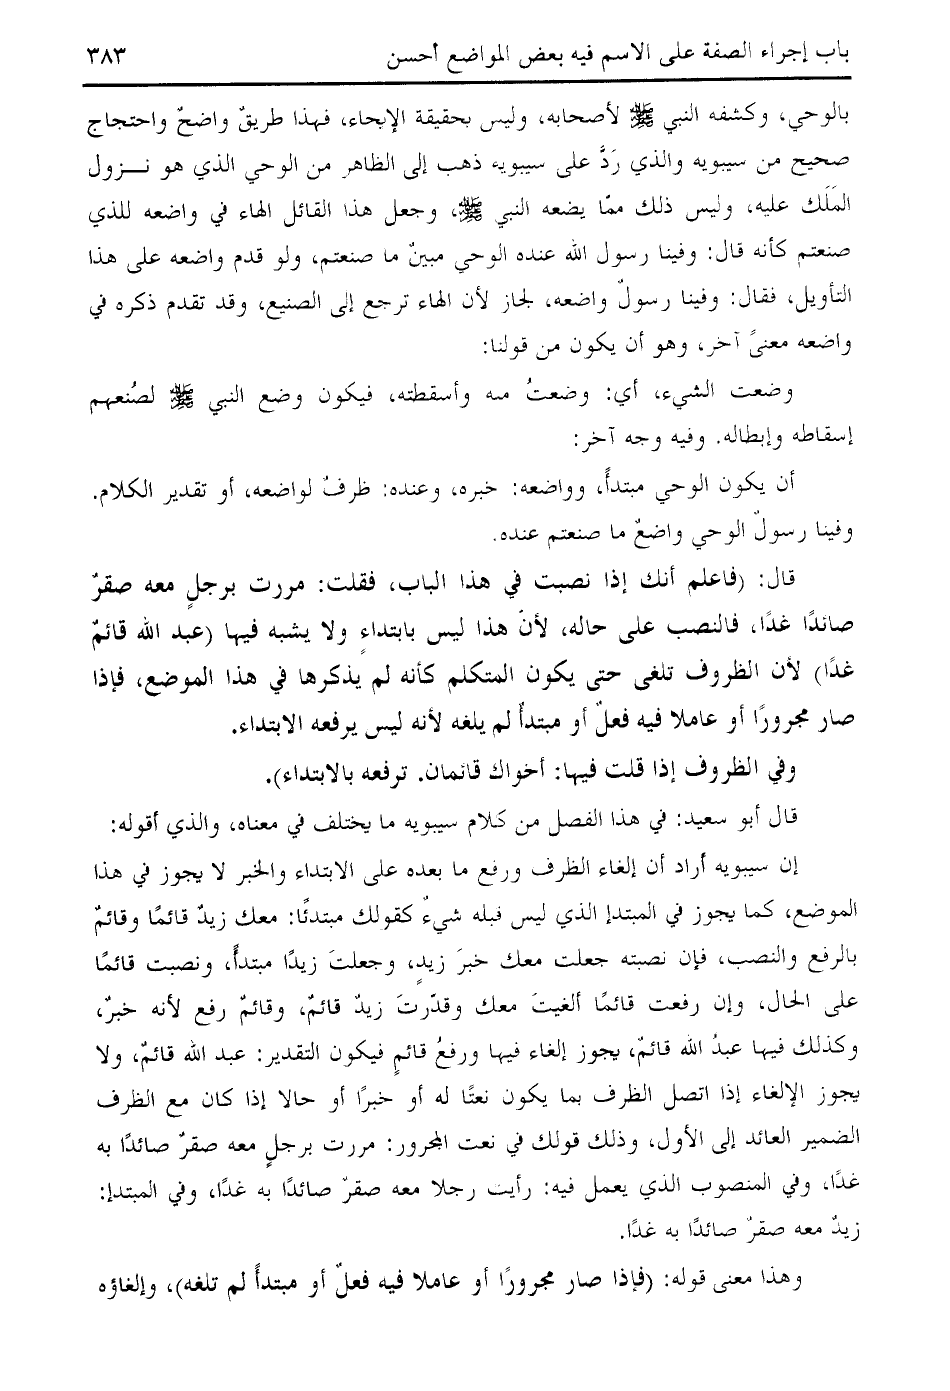 باب إجراء الصفة على الاسم فيه بعض المواضع أحسن ٣٨٣
بالوحي، وكشفه النبي ﷺ لأصحابه، وليس بحقيقة الإيحاء، فهذا طريقٌ واضحٌ واحتجاج
صحيح من سيبويه والذي رَدَّ على سيبويه ذهب إلى الظاهر من الوحي الذي هو نـزول
المَلَك عليه، وليس ذلك ممّا يضعه النبي ﷺ، وجعل هذا القائل الهاء في واضعه للذي
صنعتم كأنه قال: وفينا رسول الله عنده الوحي مبينٌ ما صنعتم، ولو قدم واضعه على هذا
التأويل، فقال: وفينا رسولٌ واضعه، لجاز لأن الهاء ترجع إلى الصنيع، وقد تقدم ذكره في
واضعه معنىً آخر، وهو أن يكون من قولنا:
وضعت الشيء، أي: وضعتُ منه وأسقطته، فيكون وضع النبي ﷺ لصُنعهم
إسقاطه وإبطاله. وفيه وجه آخر:
أن يكون الوحي مبتدأً، وواضعه: خبره، وعنده: ظرفٌ لواضعه، أو تقدير الكلام.
وفينا رسولٌ الوحي واضعٌ ما صنعتم عنده.
قال: (فاعلم أنك إذا نصبت في هذا الباب، فقلت: مررت برجلٍ معه صقرٌ
صائدًا غدًا، فالنصب على حاله، لأنّ هذا ليس بابتداءٍ ولا يشبه فيها (عبد الله قائمٌ
غدًا) لأن الظروف تلغى حتى يكون المتكلم كأنه لم يذكرها في هذا الموضع، فإذا
صار مجرورًا أو عاملا فيه فعلٌ أو مبتدأٌ لم يلغه لأنه ليس يرفعه الابتداء.
وفي الظروف إذا قلت فيها: أخواك قائمان. ترفعه بالابتداء).
قال أبو سعيد: في هذا الفصل من كلام سيبويه ما يختلف في معناه، والذي أقوله:
إن سيبويه أراد أن إلغاء الظرف ورفع ما بعده على الابتداء والخبر لا يجوز في هذا
الموضع، كما يجوز في المبتدإ الذي ليس قبله شيءٌ كقولك مبتدئًا: معك زيدٌ قائمًا وقائمٌ
بالرفع والنصب، فإن نصبته جعلت معك خبرَ زيدٍ، وجعلتَ زيدًا مبتدأً، ونصبت قائمًا
على الحال، وإن رفعت قائمًا ألغيتَ معك وقدّرتَ زيدٌ قائمٌ، وقائمٌ رفع لأنه خبرٌ،
وكذلك فيها عبدُ الله قائمٌ، يجوز إلغاء فيها ورفعُ قائمٍ فيكون التقدير: عبد الله قائمٌ، ولا
يجوز الإلغاء إذا اتصل الظرف بما يكون نعتًا له أو خبرًا أو حالا إذا كان مع الظرف
الضمير العائد إلى الأول، وذلك قولك في نعت المجرور: مررت برجلٍ معه صقرٌ صائدًا به
غدًا، وفي المنصوب الذي يعمل فيه: رأيت رجلا معه صقرٌ صائدًا به غدًا، وفي المبتدإ:
زيدٌ معه صقرٌ صائدًا به غدًا.
وهذا معنى قوله: (فإذا صار مجرورًا أو عاملا فيه فعلٌ أو مبتدأً لم تلغه)، وإلغاؤه